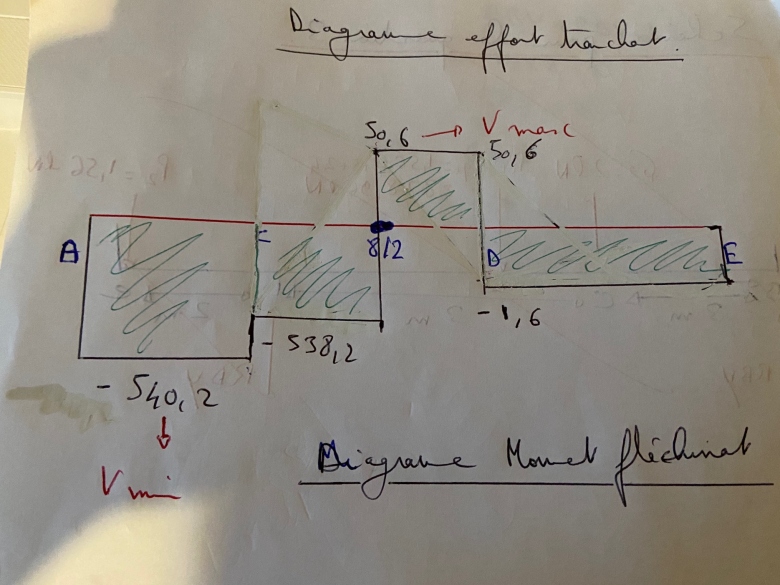 Diagramme effort tranchat.
50,6 → V max
50,6
A
C
B12
D
E
- 1,6
- 538,2
- 540,2
V min
Diagrame Momet fléchinat